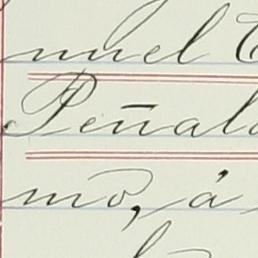 nuel
Peñal
mo, á